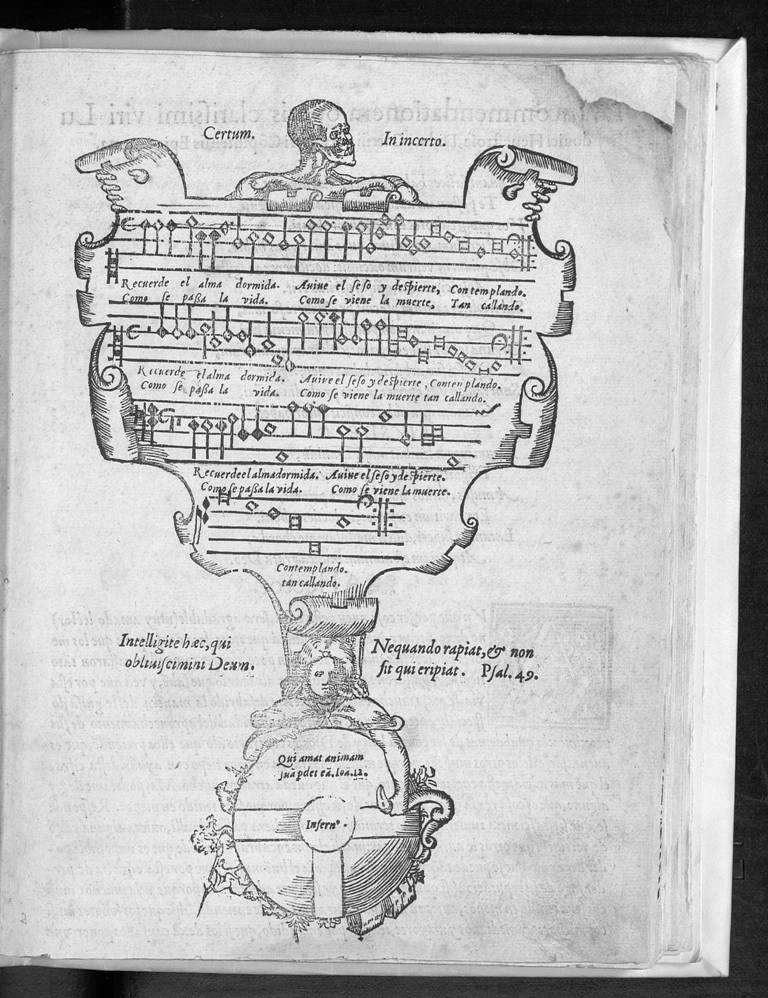 Certum. In incerto.
Recuerde el alma dormida. Auiue el seso y despierte, Contemplando.
Como se paßa la vida. Como se viene la muerte, Tan callando.
Recuerde el alma dormida. Auiue el seso y despierte, Contemplando.
Como se paßa la vida. Como se viene la muerte tan callando.
Recuerde el alma dormida. Auiue el seso y despierte.
Como se paßa la vida. Como se viene la muerte.
Contemplando.
tan callando.
Intelligite hæc, qui
obliuiscimini Deum.
Nequando rapiat, & non
sit qui eripiat. Psal. 49.
Qui amat animam
suā pdet eā. Ioa. 12.
Infernꝰ.